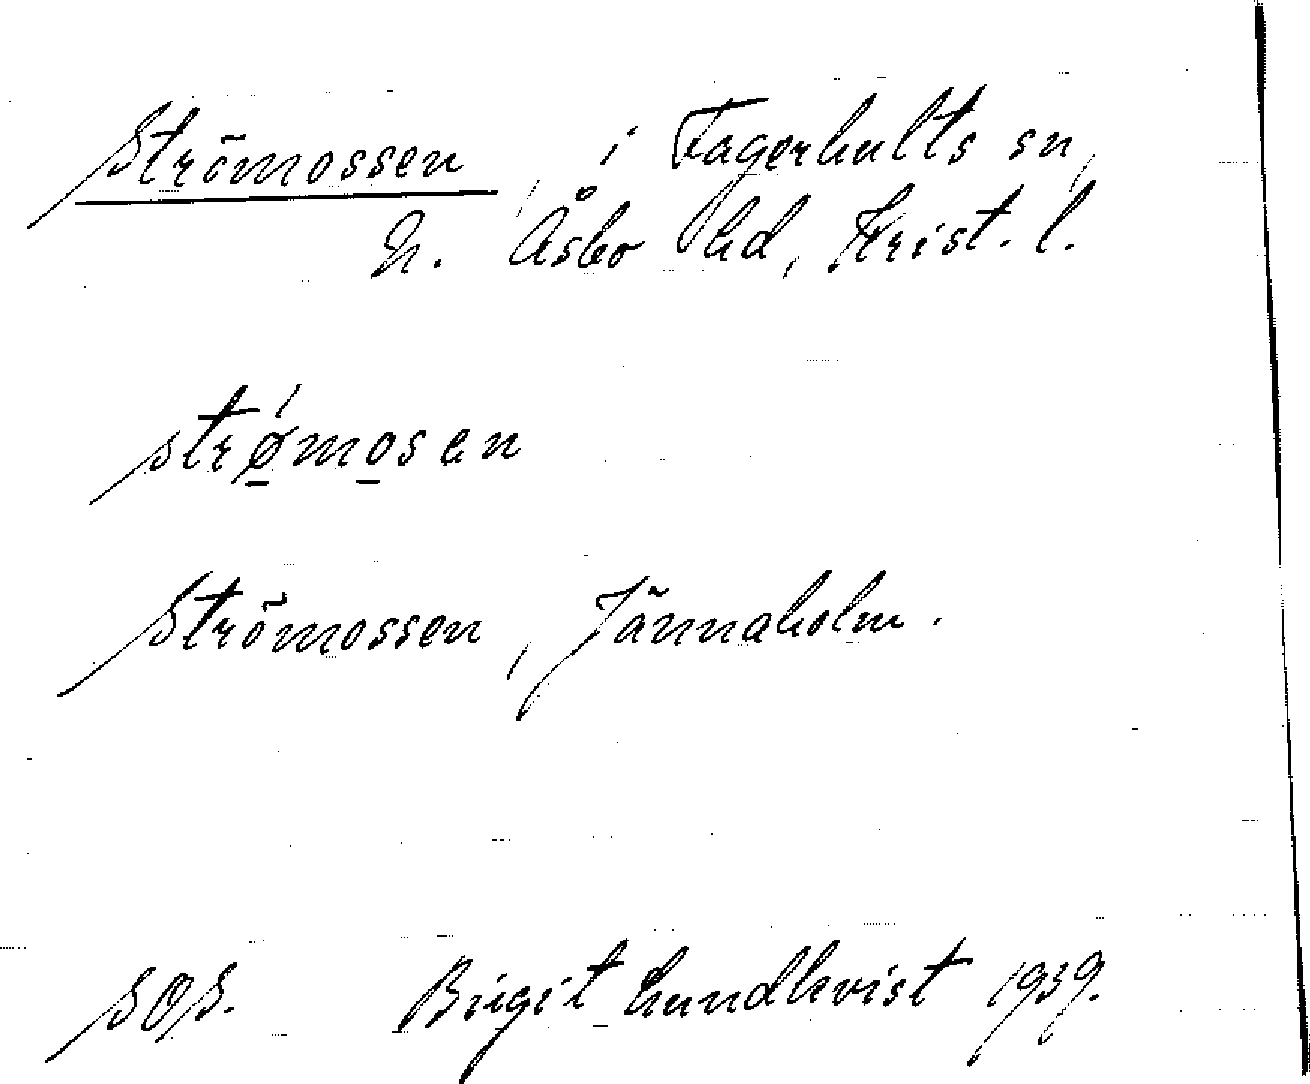 Strömossen, i Fagerhults sn,
N. Åsbo hd, Krist. l.
strǿ̱mo̱sen
Strömossen, Jännaholm.
SOS. Birgit Lundkvist 1939.